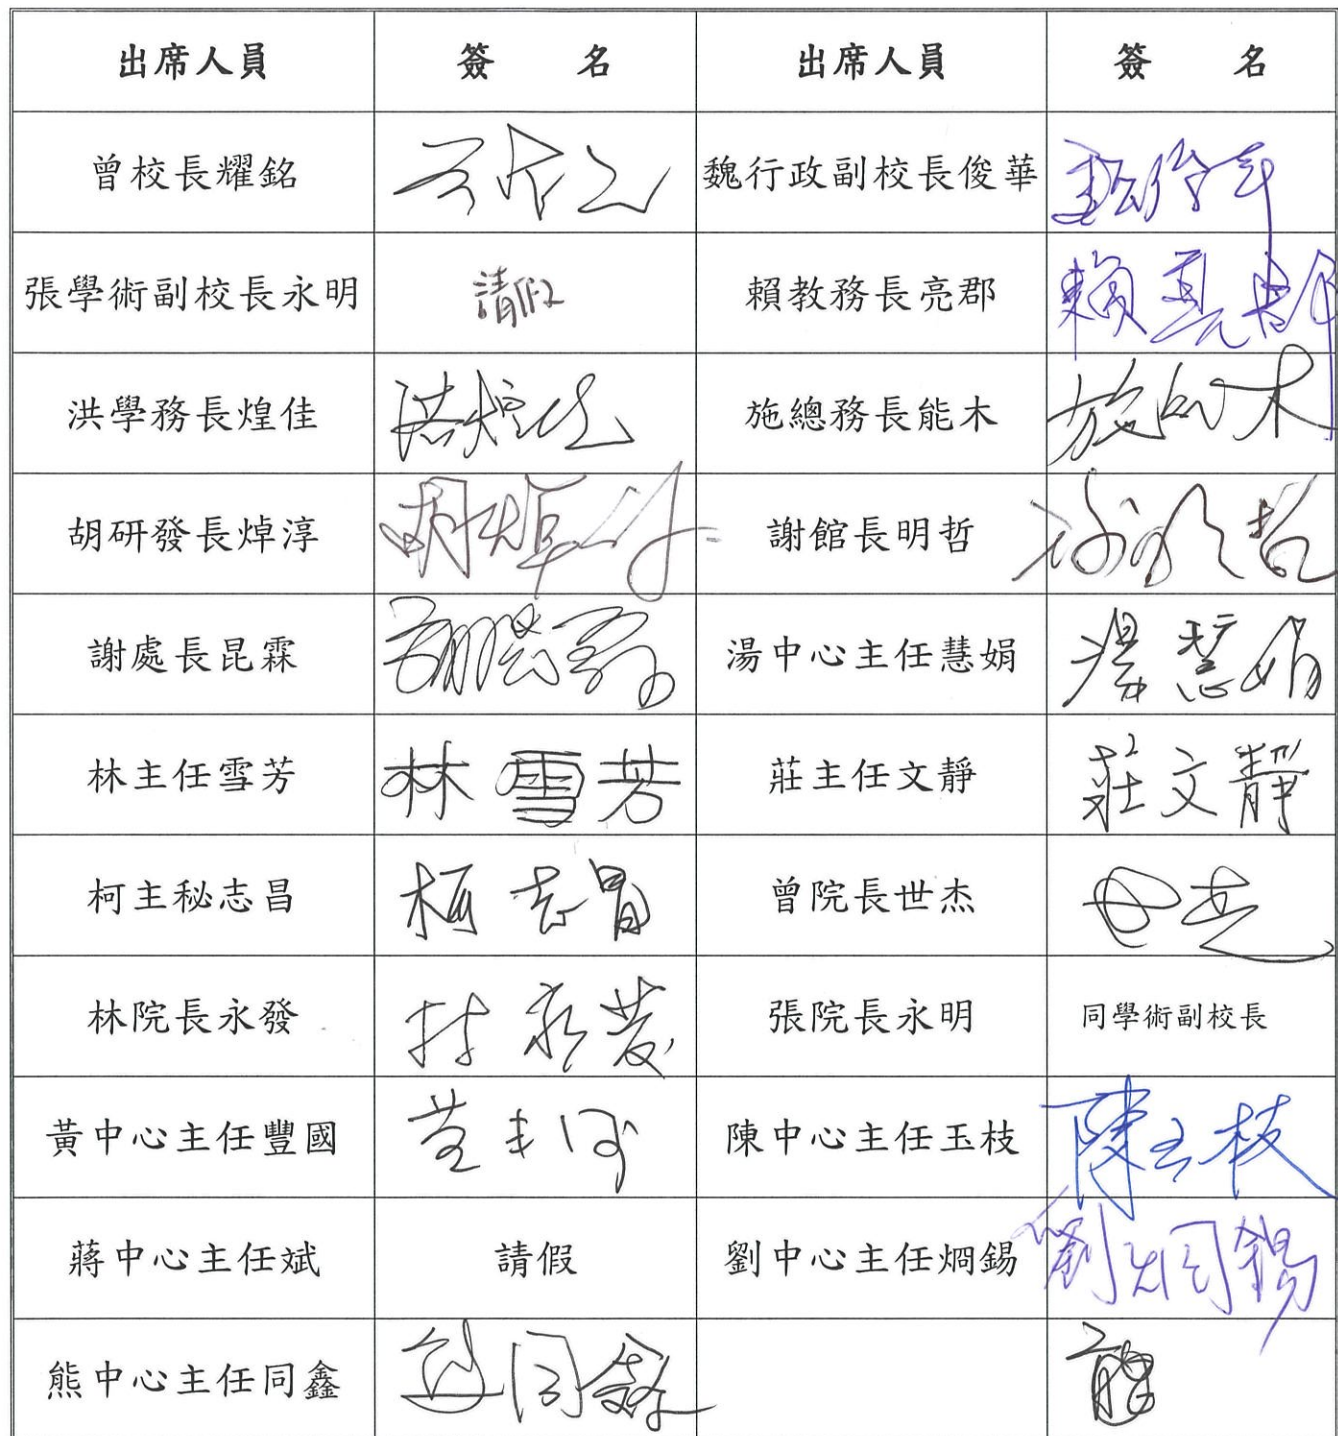 出席人員 簽 名 出席人員 簽 名
曾校長耀銘 魏行政副校長俊華
張學術副校長永明 請假 賴教務長亮郡 賴亮郡
洪學務長煌佳 洪煌佳 施總務長能木 施能木
胡研發長焯淳 胡焯淳 謝館長明哲 謝明哲
謝處長昆霖 湯中心主任慧娟 湯慧娟
林主任雪芳 林雪芳 莊主任文靜 莊文靜
柯主秘志昌 柯志昌 曾院長世杰
林院長永發 林永發 張院長永明 同學術副校長
黃中心主任豐國 陳中心主任玉枝 陳玉枝
蔣中心主任斌 請假 劉中心主任烱錫 劉烱錫
熊中心主任同鑫